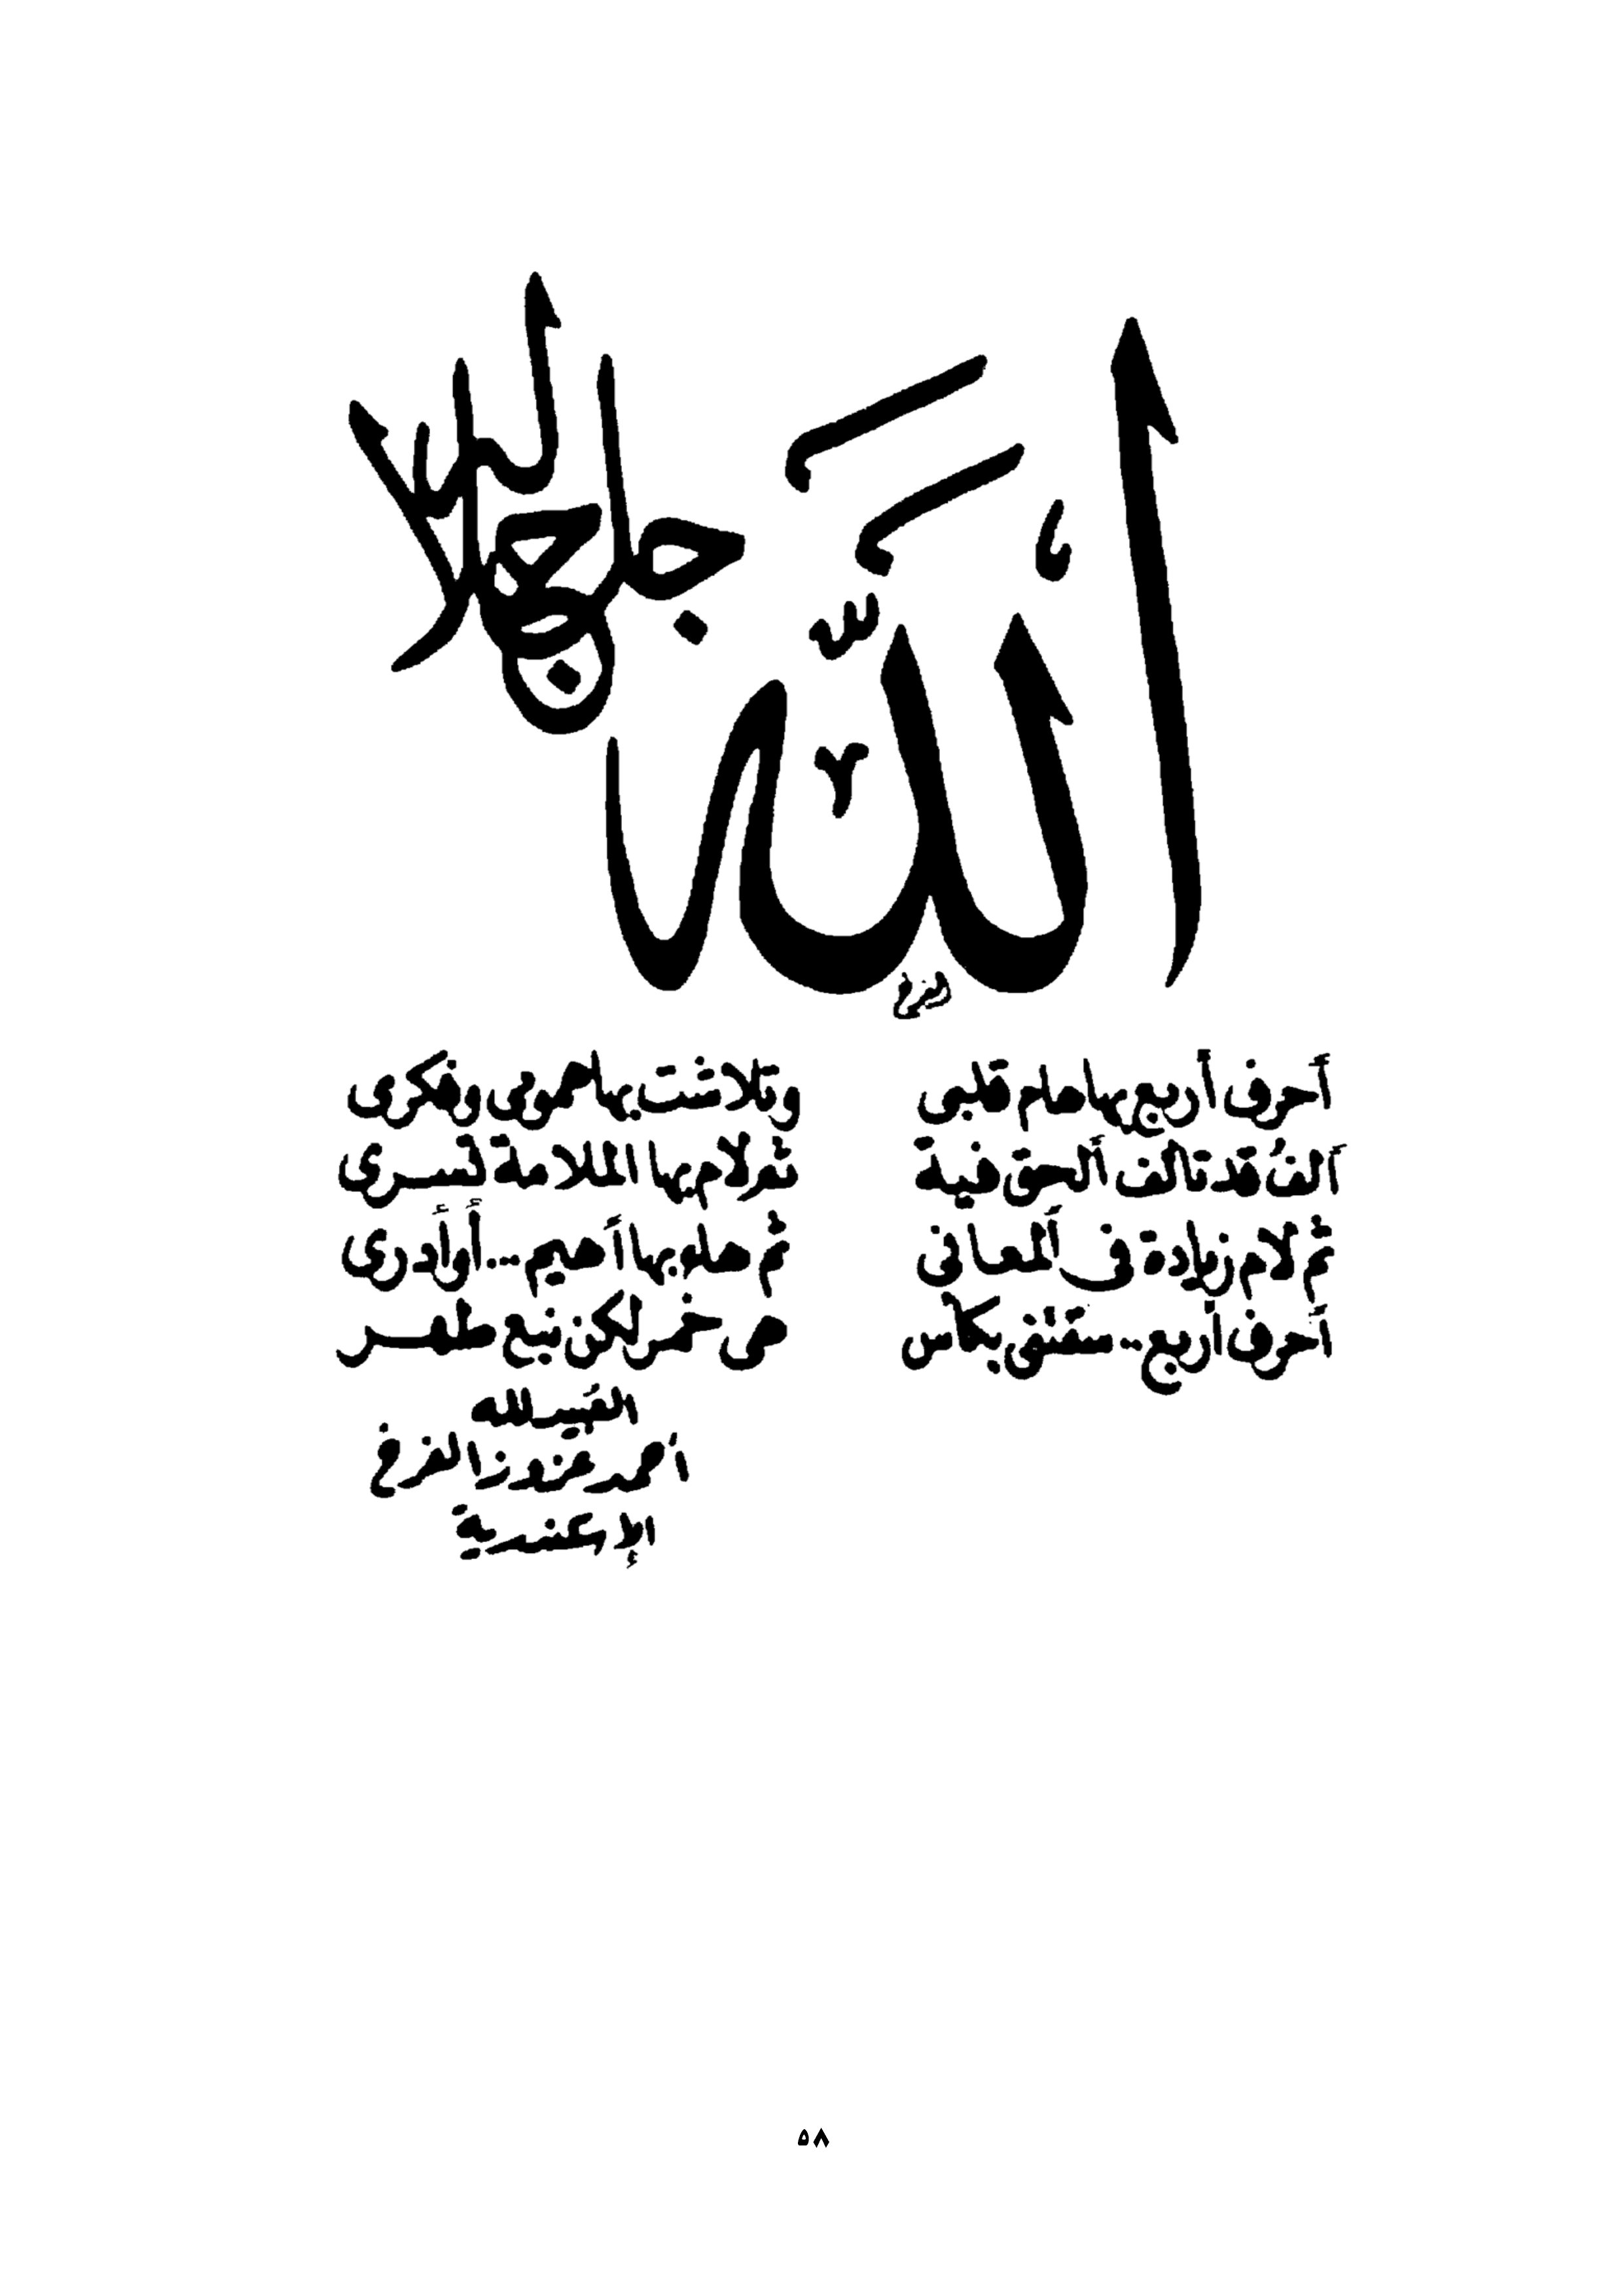 الله جل جلاله
أحرف أربع بها هام قلبى وتلاشت بها همومى وفكرى
ألف قد تألف ألحق فيه ثم لام بها الملامة تسرى
ثم لام زيادة فى ألمعانى ثم هاء بها أهيم .. أو أدرى
أحرف أربع .. ستنتى بكأس هى خمر لكن نبع طهر
العبد لله
أحمد
الإسكندرية
٥٨